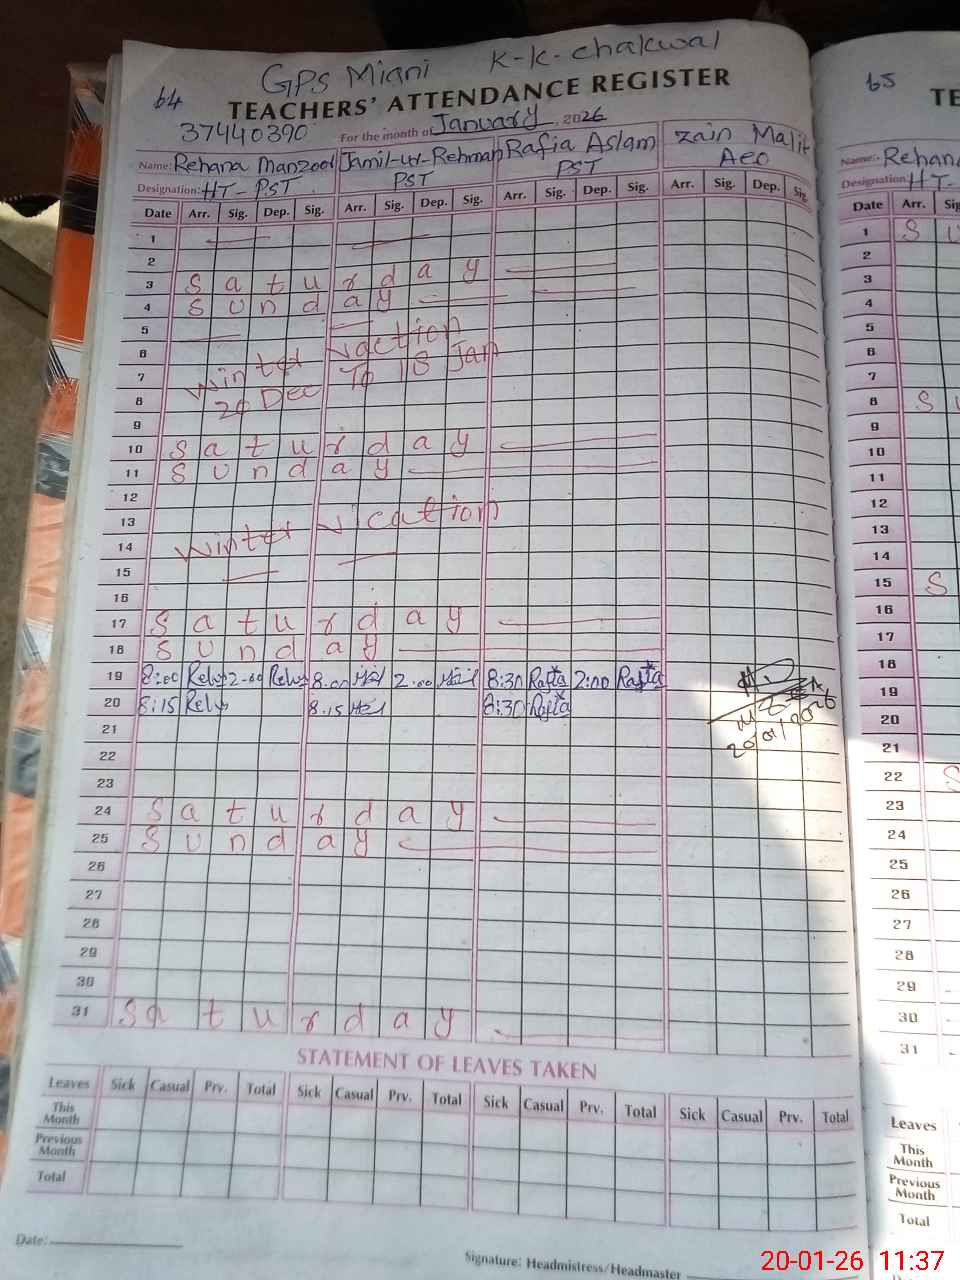 GPS Miani K-K-chakwal
64
TEACHERS' ATTENDANCE REGISTER
37440390 For the month of January 2026
Name: Rehana Manzoor Jamil-ur-Rehman Rafia Aslam Zain Malik
Designation: HT-PST PST PST AEO
Date Arr. Sig. Dep. Sig. Arr. Sig. Dep. Sig. Arr. Sig. Dep. Sig. Arr. Sig. Dep. Sig.
1
2
3 Saturday
4 Sunday
5
6 Winter Vaction
7 20 Dec To 18 Jan
8
9
10 Saturday
11 Sunday
12
13 Winter Vication
14
15
16
17 Saturday
18 Sunday
19 8:00 2:00 8.00 2.00 8:30 Rafia 2:00 Rafia
20 8:15 8.15 8:30 Rafia
20/01/2026
21
22
23
24 Saturday
25 Sunday
26
27
28
29
30
31 Saturday
STATEMENT OF LEAVES TAKEN
Leaves Sick Casual Prv. Total Sick Casual Prv. Total Sick Casual Prv. Total Sick Casual Prv. Total
This Month
Previous Month
Total
Date:
Signature: Headmistress/Headmaster
65
TE
Name:- Rehan
Designation: HT-
Date Arr. Sig
1 S U
2
3
4
5
6
7
8 S U
9
10
11
12
13
14
15 S
16
17
18
19
20
21
22 S
23
24
25
26
27
28
29
30
31
Leaves
This Month
Previous Month
Total
20-01-26 11:37